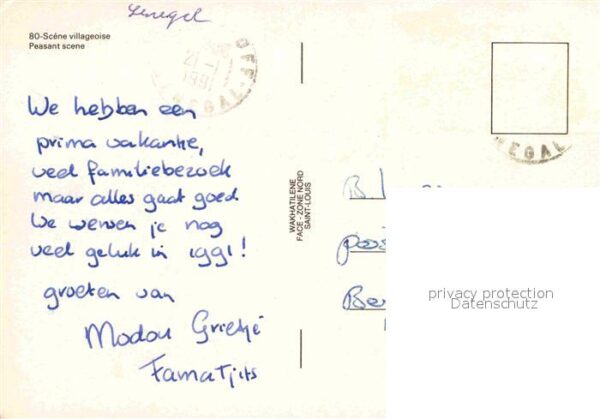 Senegal
80-Scéne villageoise
Peasant scene
We hebben een
prima vakantie,
veel familiebezoek
maar alles gaat goed.
We wensen je nog
veel geluk in 1991!
groeten van
Modou Grietje
Fama Tjits
WAKHATILENE
FACE - ZONE NORD
SAINT-LOUIS
privacy protection
Datenschutz